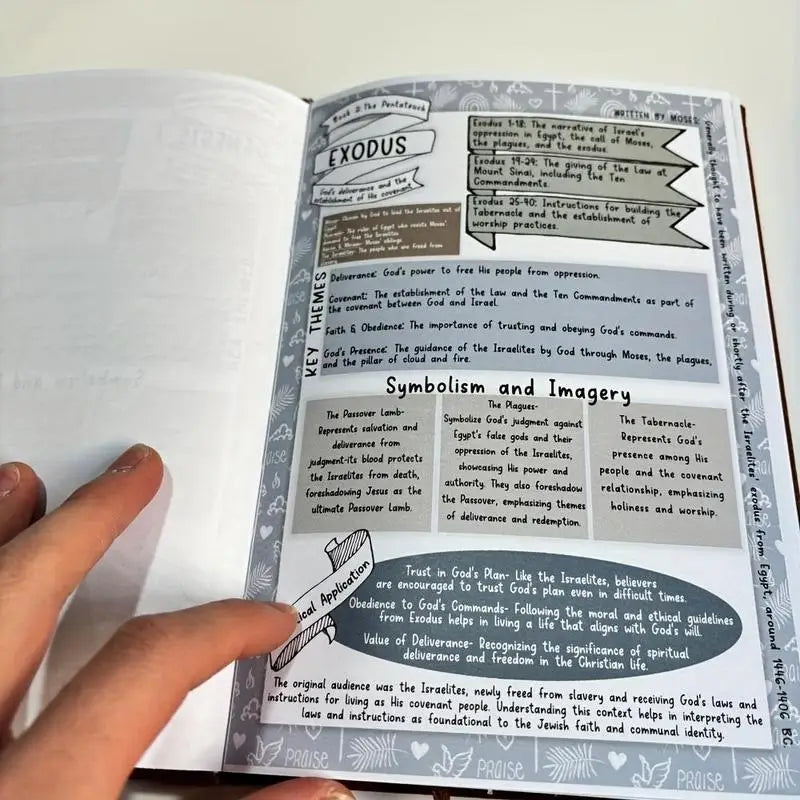 Book 2: The Pentateuch
EXODUS
God's deliverance and the
establishment of His covenant
WRITTEN BY MOSES:
Generally thought to have been written during or shortly after the Israelites' exodus from Egypt, around 1446-1406 BC
Exodus 1-18: The narrative of Israel's
oppression in Egypt, the call of Moses,
the plagues, and the exodus.
Exodus 19-24: The giving of the law at
Mount Sinai, including the Ten
Commandments.
Exodus 25-40: Instructions for building the
Tabernacle and the establishment of
worship practices.
Moses- Chosen by God to lead the Israelites out of
Egypt
Pharaoh- The ruler of Egypt who resists Moses'
demand to free the Israelites
Aaron & Miriam- Moses' siblings
The Israelites- The people who are freed from
slavery
KEY THEMES
Deliverance: God's power to free His people from oppression.
Covenant: The establishment of the Law and the Ten Commandments as part of
the covenant between God and Israel.
Faith & Obedience: The importance of trusting and obeying God's commands.
God's Presence: The guidance of the Israelites by God through Moses, the plagues,
and the pillar of cloud and fire.
Symbolism and Imagery
The Passover Lamb-
Represents salvation and
deliverance from
judgment-its blood protects
the Israelites from death,
foreshadowing Jesus as the
ultimate Passover Lamb.
The Plagues-
Symbolize God's judgment against
Egypt's false gods and their
oppression of the Israelites,
showcasing His power and
authority. They also foreshadow
the Passover, emphasizing themes
of deliverance and redemption.
The Tabernacle-
Represents God's
presence among His
people and the covenant
relationship, emphasizing
holiness and worship.
ical Application
Trust in God's Plan- Like the Israelites, believers
are encouraged to trust God's plan even in difficult times.
Obedience to God's Commands- Following the moral and ethical guidelines
from Exodus helps in living a life that aligns with God's will.
Value of Deliverance- Recognizing the significance of spiritual
deliverance and freedom in the Christian life.
The original audience was the Israelites, newly freed from slavery and receiving God's laws and
instructions for living as His covenant people. Understanding this context helps in interpreting the
laws and instructions as foundational to the Jewish faith and communal identity.
PRAISE
PRAISE
PRAISE